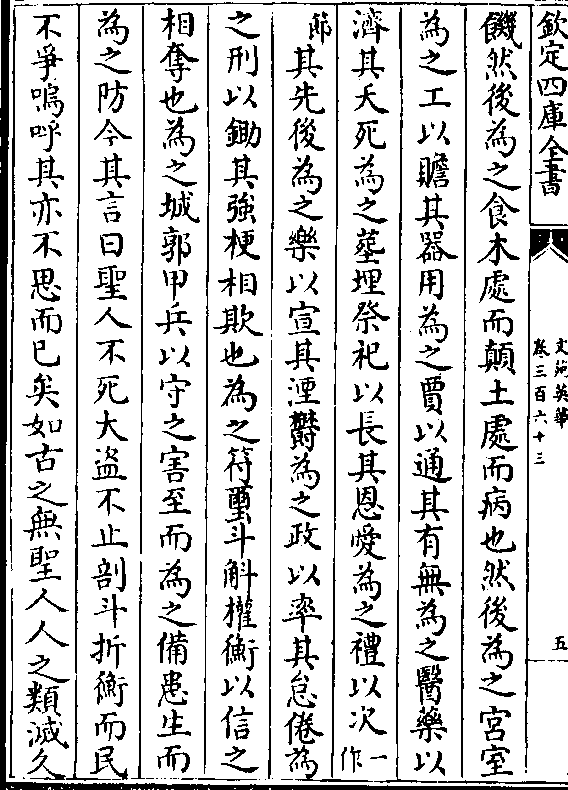 欽定四庫全書
文苑英華
卷三百六十三
五
饑然後為之食木處而顛土處而病也然後為之宮室
為之工以贍其器用為之賈以通其有無為之醫藥以
濟其夭死為之塟埋祭祀以長其恩愛為之禮以次一作
節其先後為之樂以宣其湮鬱為之政以率其怠倦為
之刑以鋤其強梗相欺也為之符璽斗斛權衡以信之
相奪也為之城郭甲兵以守之害至而為之備患生而
為之防今其言曰聖人不死大盜不止剖斗折衡而民
不爭嗚呼其亦不思而已矣如古之無聖人人之類滅久